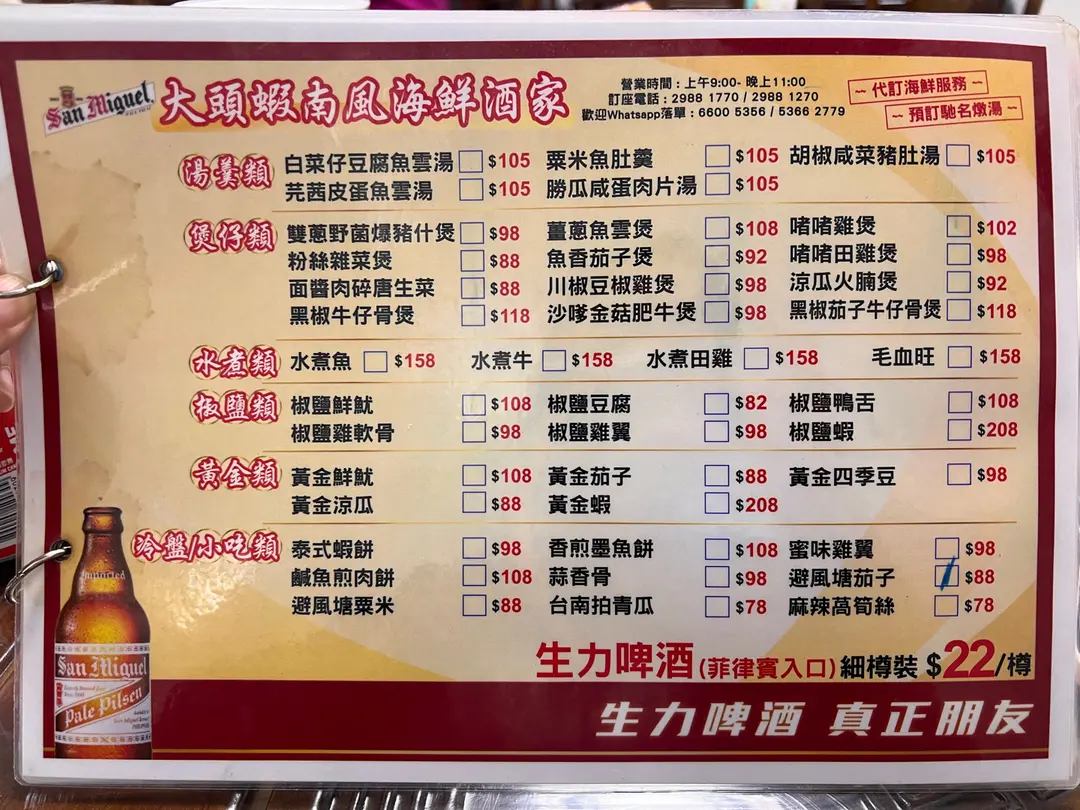 San Miguel
大頭蝦南風海鮮酒家
營業時間：上午9:00- 晚上11:00
訂座電話：2988 1770 / 2988 1270
歡迎Whatsapp落單：6600 5356 / 5366 2779
~ 代訂海鮮服務 ~
~ 預訂馳名燉湯 ~
湯羹類
白菜仔豆腐魚雲湯 $105 粟米魚肚羹 $105 胡椒咸菜豬肚湯 $105
芫茜皮蛋魚雲湯 $105 勝瓜咸蛋肉片湯 $105
煲仔類
雙蔥野菌爆豬什煲 $98 薑蔥魚雲煲 $108 啫啫雞煲 $102
粉絲雜菜煲 $88 魚香茄子煲 $92 啫啫田雞煲 $98
面醬肉碎唐生菜 $88 川椒豆椒雞煲 $98 涼瓜火腩煲 $92
黑椒牛仔骨煲 $118 沙嗲金菇肥牛煲 $98 黑椒茄子牛仔骨煲 $118
水煮類 水煮魚 $158 水煮牛 $158 水煮田雞 $158 毛血旺 $158
椒鹽類 椒鹽鮮魷 $108 椒鹽豆腐 $82 椒鹽鴨舌 $108
椒鹽雞軟骨 $98 椒鹽雞翼 $98 椒鹽蝦 $208
黃金類 黃金鮮魷 $108 黃金茄子 $88 黃金四季豆 $98
黃金涼瓜 $88 黃金蝦 $208
冷盤/小吃類 泰式蝦餅 $98 香煎墨魚餅 $108 蜜味雞翼 $98
鹹魚煎肉餅 $108 蒜香骨 $98 避風塘茄子 $88
避風塘粟米 $88 台南拍青瓜 $78 麻辣萵筍絲 $78
生力啤酒(菲律賓入口)細樽裝 $22/樽
生力啤酒 真正朋友
Imported
San Miguel
Pale Pilsen